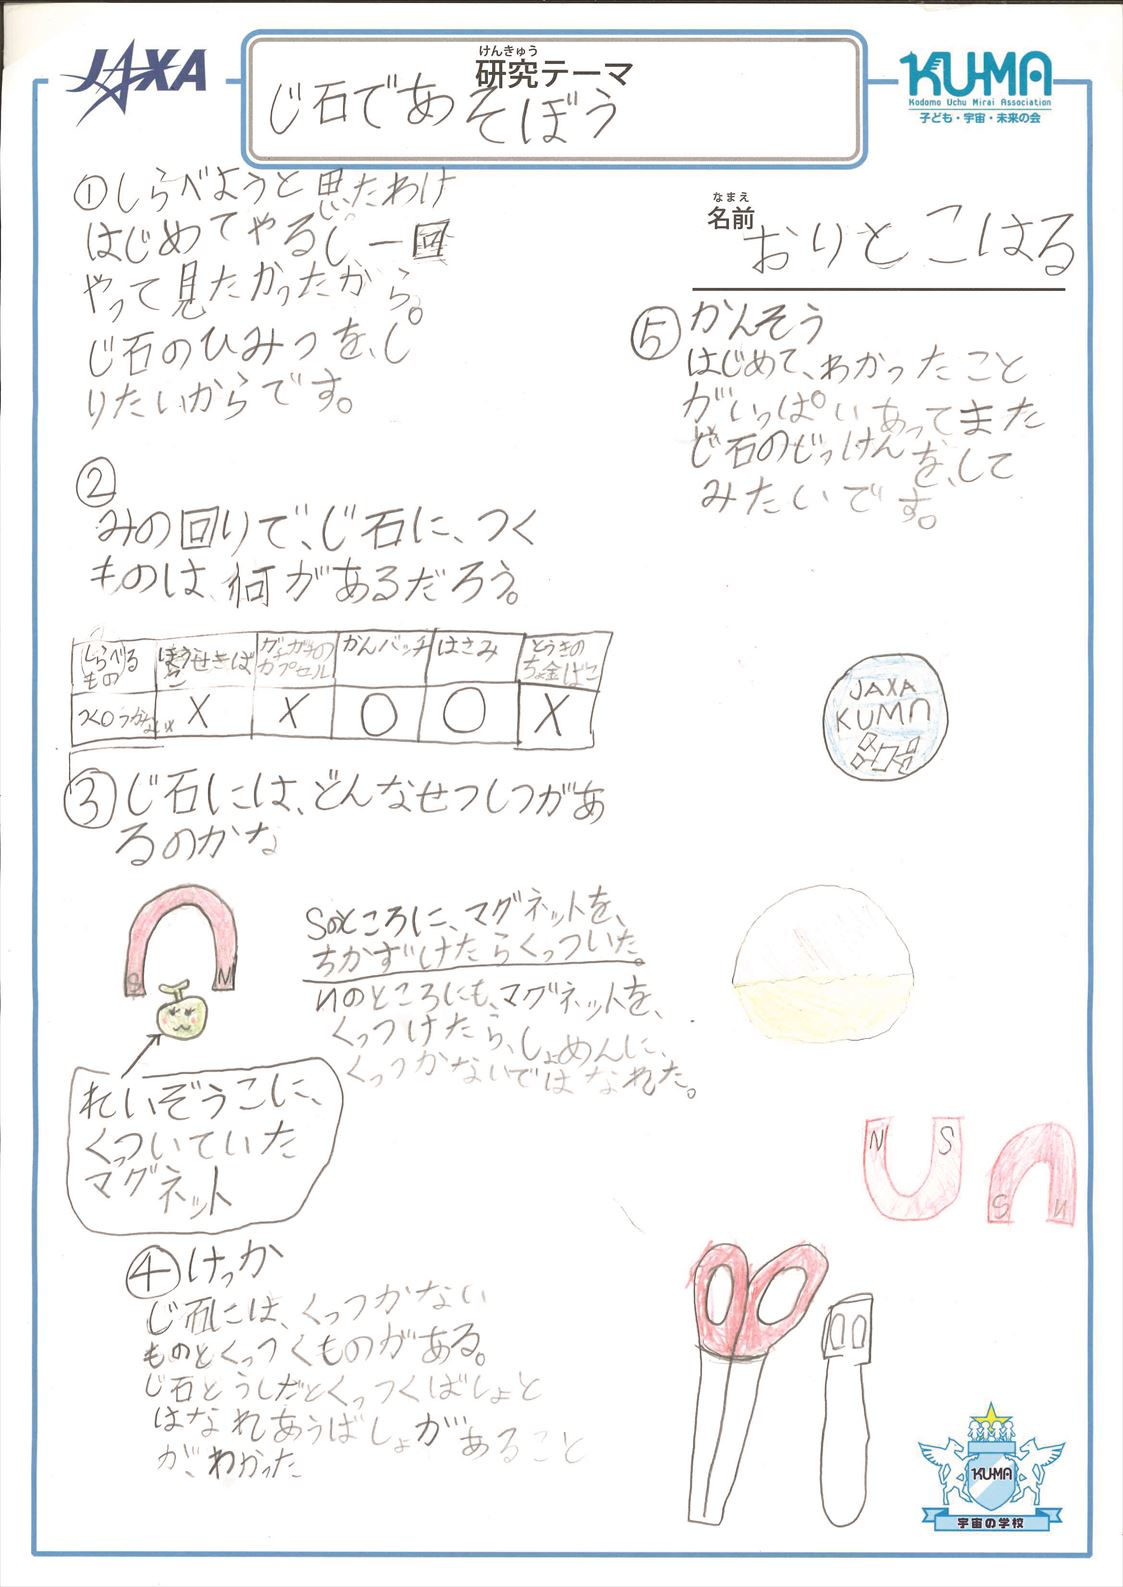 JAXA
けんきゅう
研究テーマ
じ石であそぼう
KU-MA
Kodomo Uchu Mirai Association
子ども・宇宙・未来の会
なまえ
名前
おりとこはる
①しらべようと思ったわけ
はじめてやるし一回
やって見たかったから。
じ石のひみつを、し
りたいからです。
②
みの回りで、じ石に、つく
ものは、何があるだろう。
しらべるもの
ほう石せきばこ
ガチガチのカプセル
かんバッチ
はさみ
とうきのちょ金ばこ
つく○つかない×
X
X
○
○
X
③じ石には、どんなせつしつがあ
るのかな
S N
Sのところに、マグネットを、
ちかずけたらくっついた。
Nのところにも、マグネットを、
くっつけたら、しょめんに、
くっつかないではなれた。
れいぞうこに、
くっついていた
マグネット
④けっか
じ石には、くっつかない
ものとくっつくものがある。
じ石どうしだとくっつくばしょと
はなれあうばしょがあること
が、わかった
⑤かんそう
はじめて、わかったこと
がいっぱいあってまた
じ石のじっけんを、して
みたいです。
JAXA
KUMA
N S
S N
KU-MA
宇宙の学校